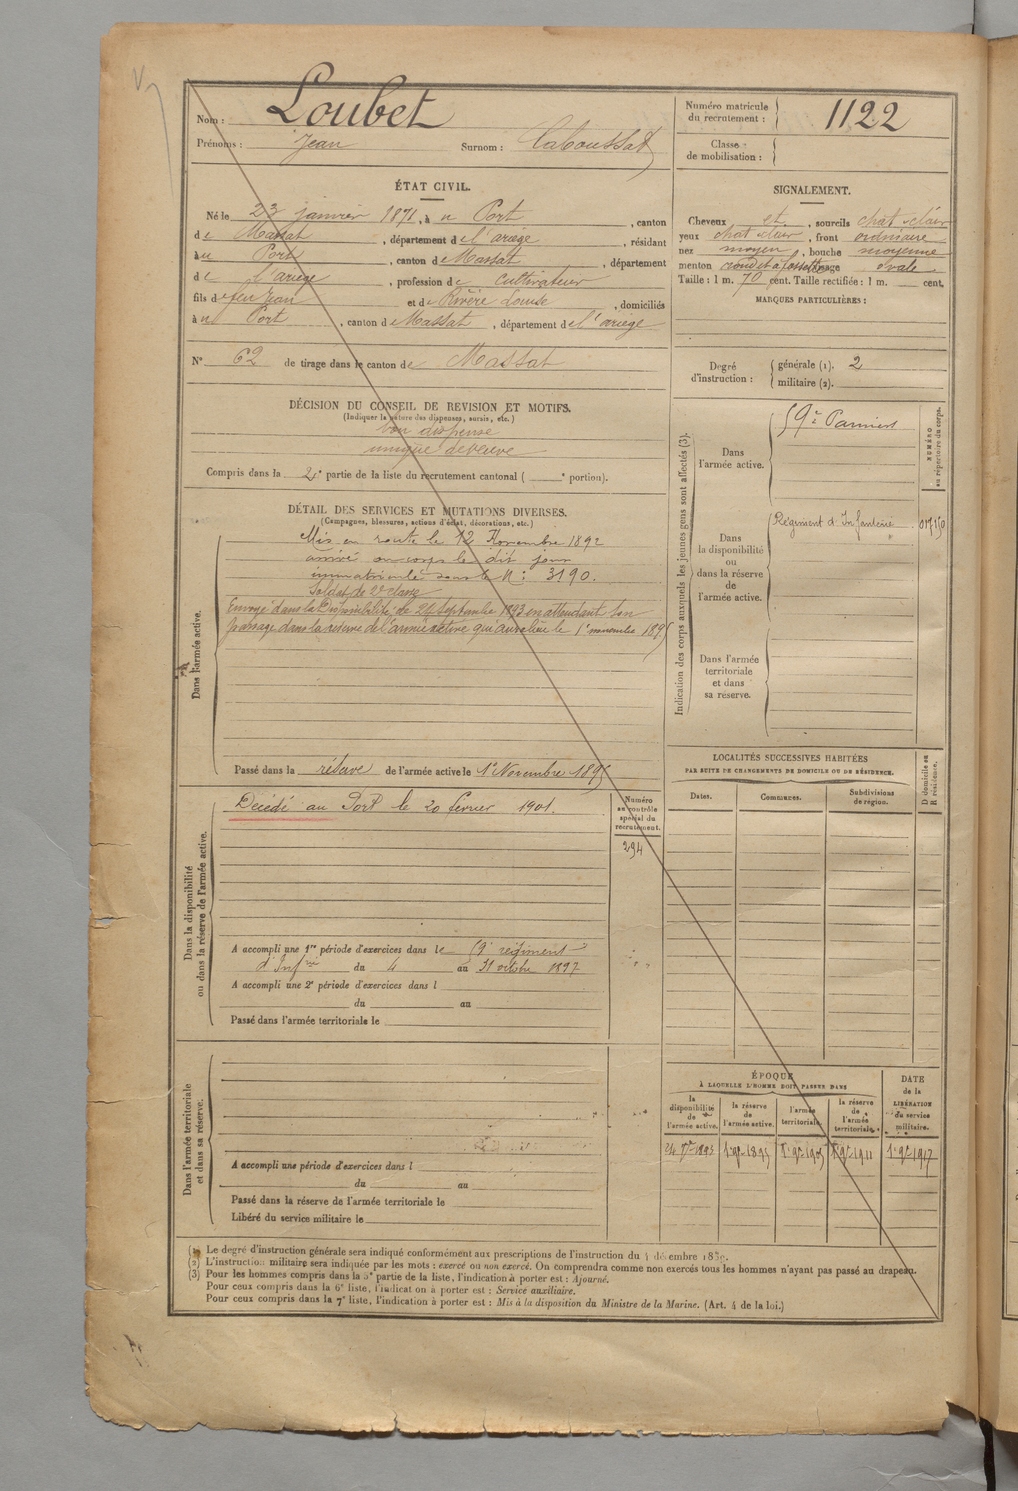 Nom : Loubet
Prénoms : Jean Surnom : Caboussat
Numéro matricule du recrutement : 1122
Classe de mobilisation :
ÉTAT CIVIL.
Né le 23 janvier 1871, à u Port, canton
de Massat, département de l'ariège, résidant
à u Port, canton de Massat, département
de l'ariège, profession de cultivateur
fils de feu Jean et de Rivère Louise, domiciliés
à u Port, canton de Massat, département de l'ariège
N° 62 de tirage dans le canton de Massat
DÉCISION DU CONSEIL DE REVISION ET MOTIFS.
(Indiquer la nature des dispenses, sursis, etc.)
bon dispensé
unique de veuve
Compris dans la 2e partie de la liste du recrutement cantonal ( e portion).
SIGNALEMENT.
Cheveux et, sourcils chat clair
yeux chat clair, front ordinaire
nez moyen, bouche moyenne
menton rond et à fossette visage ovale
Taille : 1 m. 70 cent. Taille rectifiée : 1 m. cent.
MARQUES PARTICULIÈRES :
Degré d'instruction :
générale (1). 2
militaire (2).
DÉTAIL DES SERVICES ET MUTATIONS DIVERSES.
(Campagnes, blessures, actions d'éclat, décorations, etc.)
Dans l'armée active.
Mis en route le 12 Novembre 1892
arrivé au corps le dit jour
immatriculé sous le N° : 3190.
Soldat de 2e classe
Envoyé dans la Disponibilité le 24 Septembre 1893 en attendant son
passage dans la réserve de l'armée active qui aura lieu le 1er novembre 1895
Passé dans la réserve de l'armée active le 1er Novembre 1895
Indication des corps auxquels les jeunes gens sont affectés (3).
Dans l'armée active.
59e Pamiers
NUMÉRO au répertoire du corps.
Dans la disponibilité ou dans la réserve de l'armée active.
Régiment d'Infanterie
Dans l'armée territoriale et dans sa réserve.
Dans la disponibilité ou dans la réserve de l'armée active.
Décédé au Port le 20 février 1901.
Numéro au contrôle spécial du recrutement.
294
A accompli une 1re période d'exercices dans le régiment
d'Infrie du 4 au 31 octobre 1897
A accompli une 2e période d'exercices dans l
du au
Passé dans l'armée territoriale le
LOCALITÉS SUCCESSIVES HABITÉES
PAR SUITE DE CHANGEMENTS DE DOMICILE OU DE RÉSIDENCE.
Dates. Communes. Subdivisions de région. D domicile ou R résidence.
Dans l'armée territoriale et dans sa réserve.
A accompli une période d'exercices dans l
du au
Passé dans la réserve de l'armée territoriale le
Libéré du service militaire le
ÉPOQUE
À LAQUELLE L'HOMME DOIT PASSER DANS
la disponibilité de l'armée active. la réserve de l'armée active. l'armée territoriale. la réserve de l'armée territoriale.
DATE de la LIBÉRATION du service militaire.
24 7bre 1893 1er 9bre 1895 1er 9bre 1905 1er 9bre 1911 1er 9bre 1917
(1) Le degré d'instruction générale sera indiqué conformément aux prescriptions de l'instruction du 4 décembre 1889.
(2) L'instruction militaire sera indiquée par les mots : exercé ou non exercé. On comprendra comme non exercés tous les hommes n'ayant pas passé au drapeau.
(3) Pour les hommes compris dans la 5e partie de la liste, l'indication à porter est : Ajourné.
Pour ceux compris dans la 6e liste, l'indication à porter est : Service auxiliaire.
Pour ceux compris dans la 7e liste, l'indication à porter est : Mis à la disposition du Ministre de la Marine. (Art. 4 de la loi.)